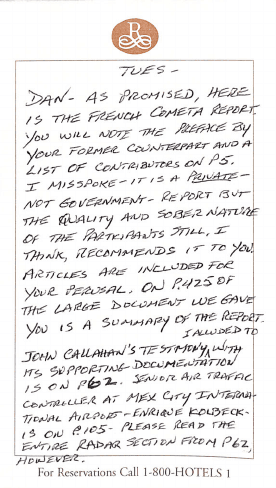 R
TUES -
DAN - AS PROMISED, HERE
IS THE FRENCH COMETA REPORT.
YOU WILL NOTE THE PREFACE BY
YOUR FORMER COUNTERPART AND A
LIST OF CONTRIBUTORS ON P5.
I MISSPOKE - IT IS A PRIVATE -
NOT GOVERNMENT - REPORT BUT
THE QUALITY AND SOBER NATURE
OF THE PARTICIPANTS STILL, I
THINK, RECOMMENDS IT TO YOU.
ARTICLES ARE INCLUDED FOR
YOUR PERUSAL. ON P.425 OF
THE LARGE DOCUMENT WE GAVE
YOU IS A SUMMARY OF THE REPORT.
I ALLUDED TO
JOHN CALLAHAN'S TESTIMONY, WITH
ITS SUPPORTING DOCUMENTATION
IS ON P62. SENIOR AIR TRAFFIC
CONTROLLER AT MEX CITY INTERNA-
TIONAL AIRPORT - ENRIQUE KOLBECK -
IS ON P.105 - PLEASE READ THE
ENTIRE RADAR SECTION FROM P62,
HOWEVER.
For Reservations Call 1-800-HOTELS 1